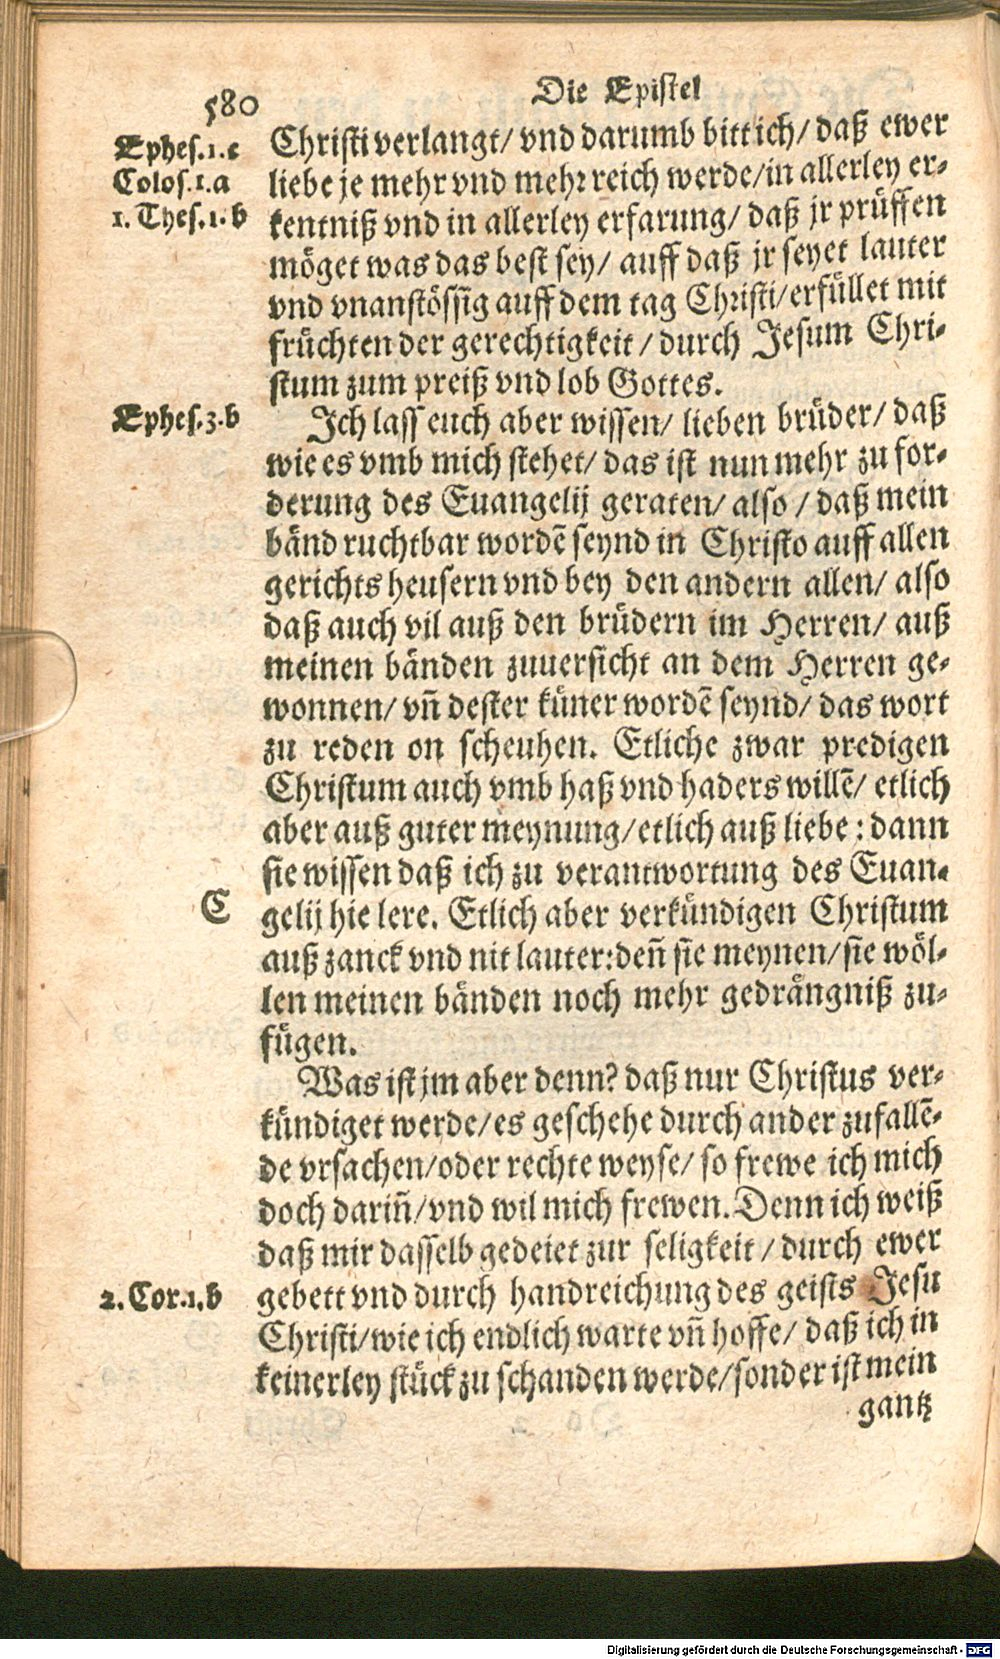 580
Die Epistel
Ephes.1.c
Colos.1.a
1. Thes.1.b
Christi verlangt/ vnd darumb bitt ich/ daß ewer
liebe je mehr vnd mehr reich werde/in allerley er-
kentniß vnd in allerley erfarung/ daß jr prüffen
möget was das best sey/ auff daß jr seyet lauter
vnd vnanstössig auff dem tag Christi/erfüllet mit
früchten der gerechtigkeit/ durch Jesum Chri-
stum zum preiß vnd lob Gottes.
Ephes.3.b
Ich lass euch aber wissen/ lieben brüder/ daß
wie es vmb mich stehet/ das ist nun mehr zu for-
derung des Euangelij geraten/ also/ daß mein
bänd ruchtbar wordē seynd in Christo auff allen
gerichts heusern vnd bey den andern allen/ also
daß auch vil auß den brüdern im Herren/ auß
meinen bänden zuuersicht an dem Herren ge-
wonnen/ vñ dester küner wordē seynd/ das wort
zu reden on scheuhen. Etliche zwar predigen
Christum auch vmb haß vnd haders willē/ etlich
aber auß guter meynung/etlich auß liebe: dann
sie wissen daß ich zu verantwortung des Euan-
C
gelij hie lere. Etlich aber verkündigen Christum
auß zanck vnd nit lauter:deñ sie meynen/sie wöl-
len meinen bänden noch mehr gedrängniß zu-
fügen.
Was ist jm aber denn? daß nur Christus ver-
kündiget werde/es geschehe durch ander zufallē-
de vrsachen/oder rechte weyse/ so frewe ich mich
doch dariñ/vnd wil mich frewen. Denn ich weiß
daß mir dasselb gedeiet zur seligkeit/durch ewer
2. Cor.1.b
gebett vnd durch handreichung des geists Jesu
Christi/wie ich endlich warte vñ hoffe/ daß ich in
keinerley stück zu schanden werde/sonder ist mein
gantz
Digitalisierung gefördert durch die Deutsche Forschungsgemeinschaft - DFG